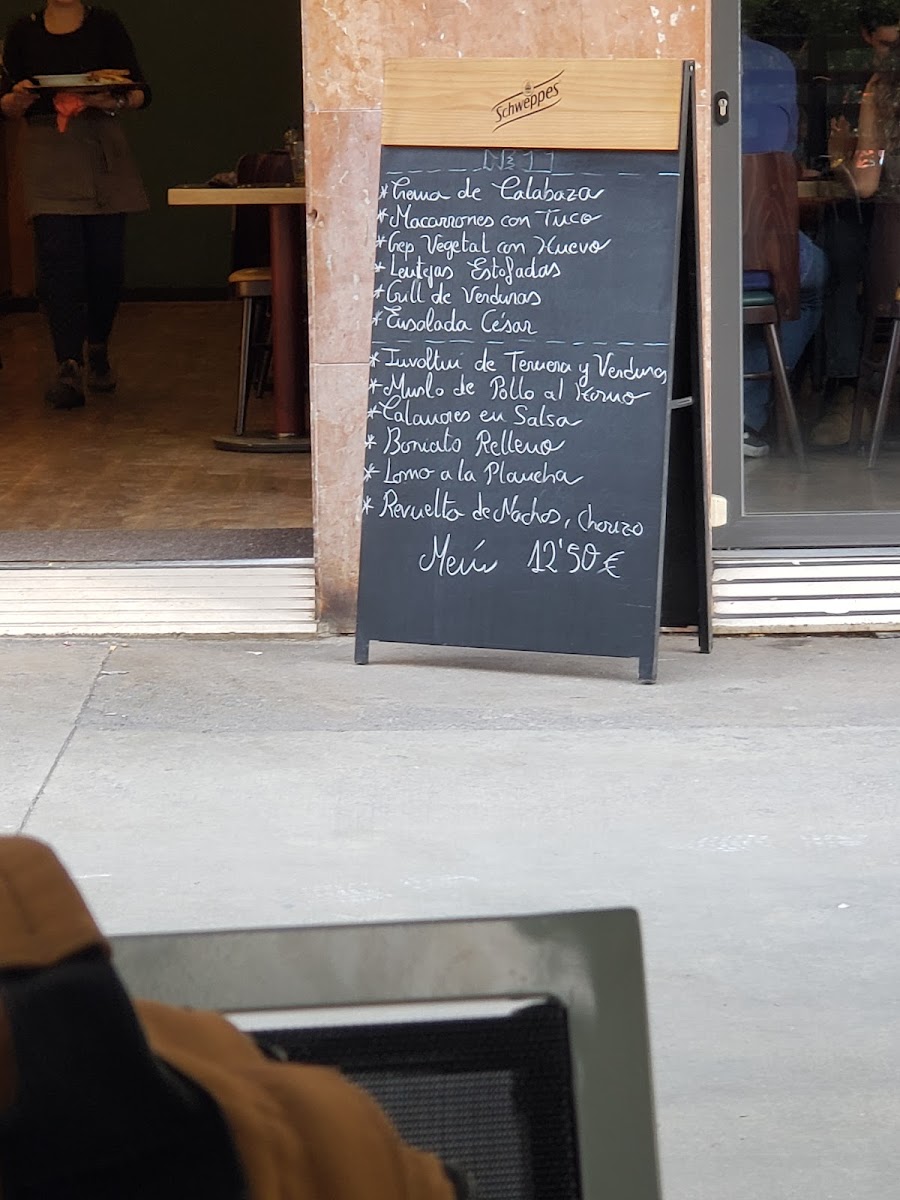 Schweppes
* Crema de Calabaza
* Macarrones con Tuco
* Cep Vegetal con Huevo
* Lentejas Estofadas
* Grill de Verduras
* Ensalada César
* Involtini de Ternera y Verduras
* Muslo de Pollo al Horno
* Calamares en Salsa
* Boniato Relleno
* Lomo a la Plancha
* Revuelto de Nachos, Chorizo
Menú 12'50€